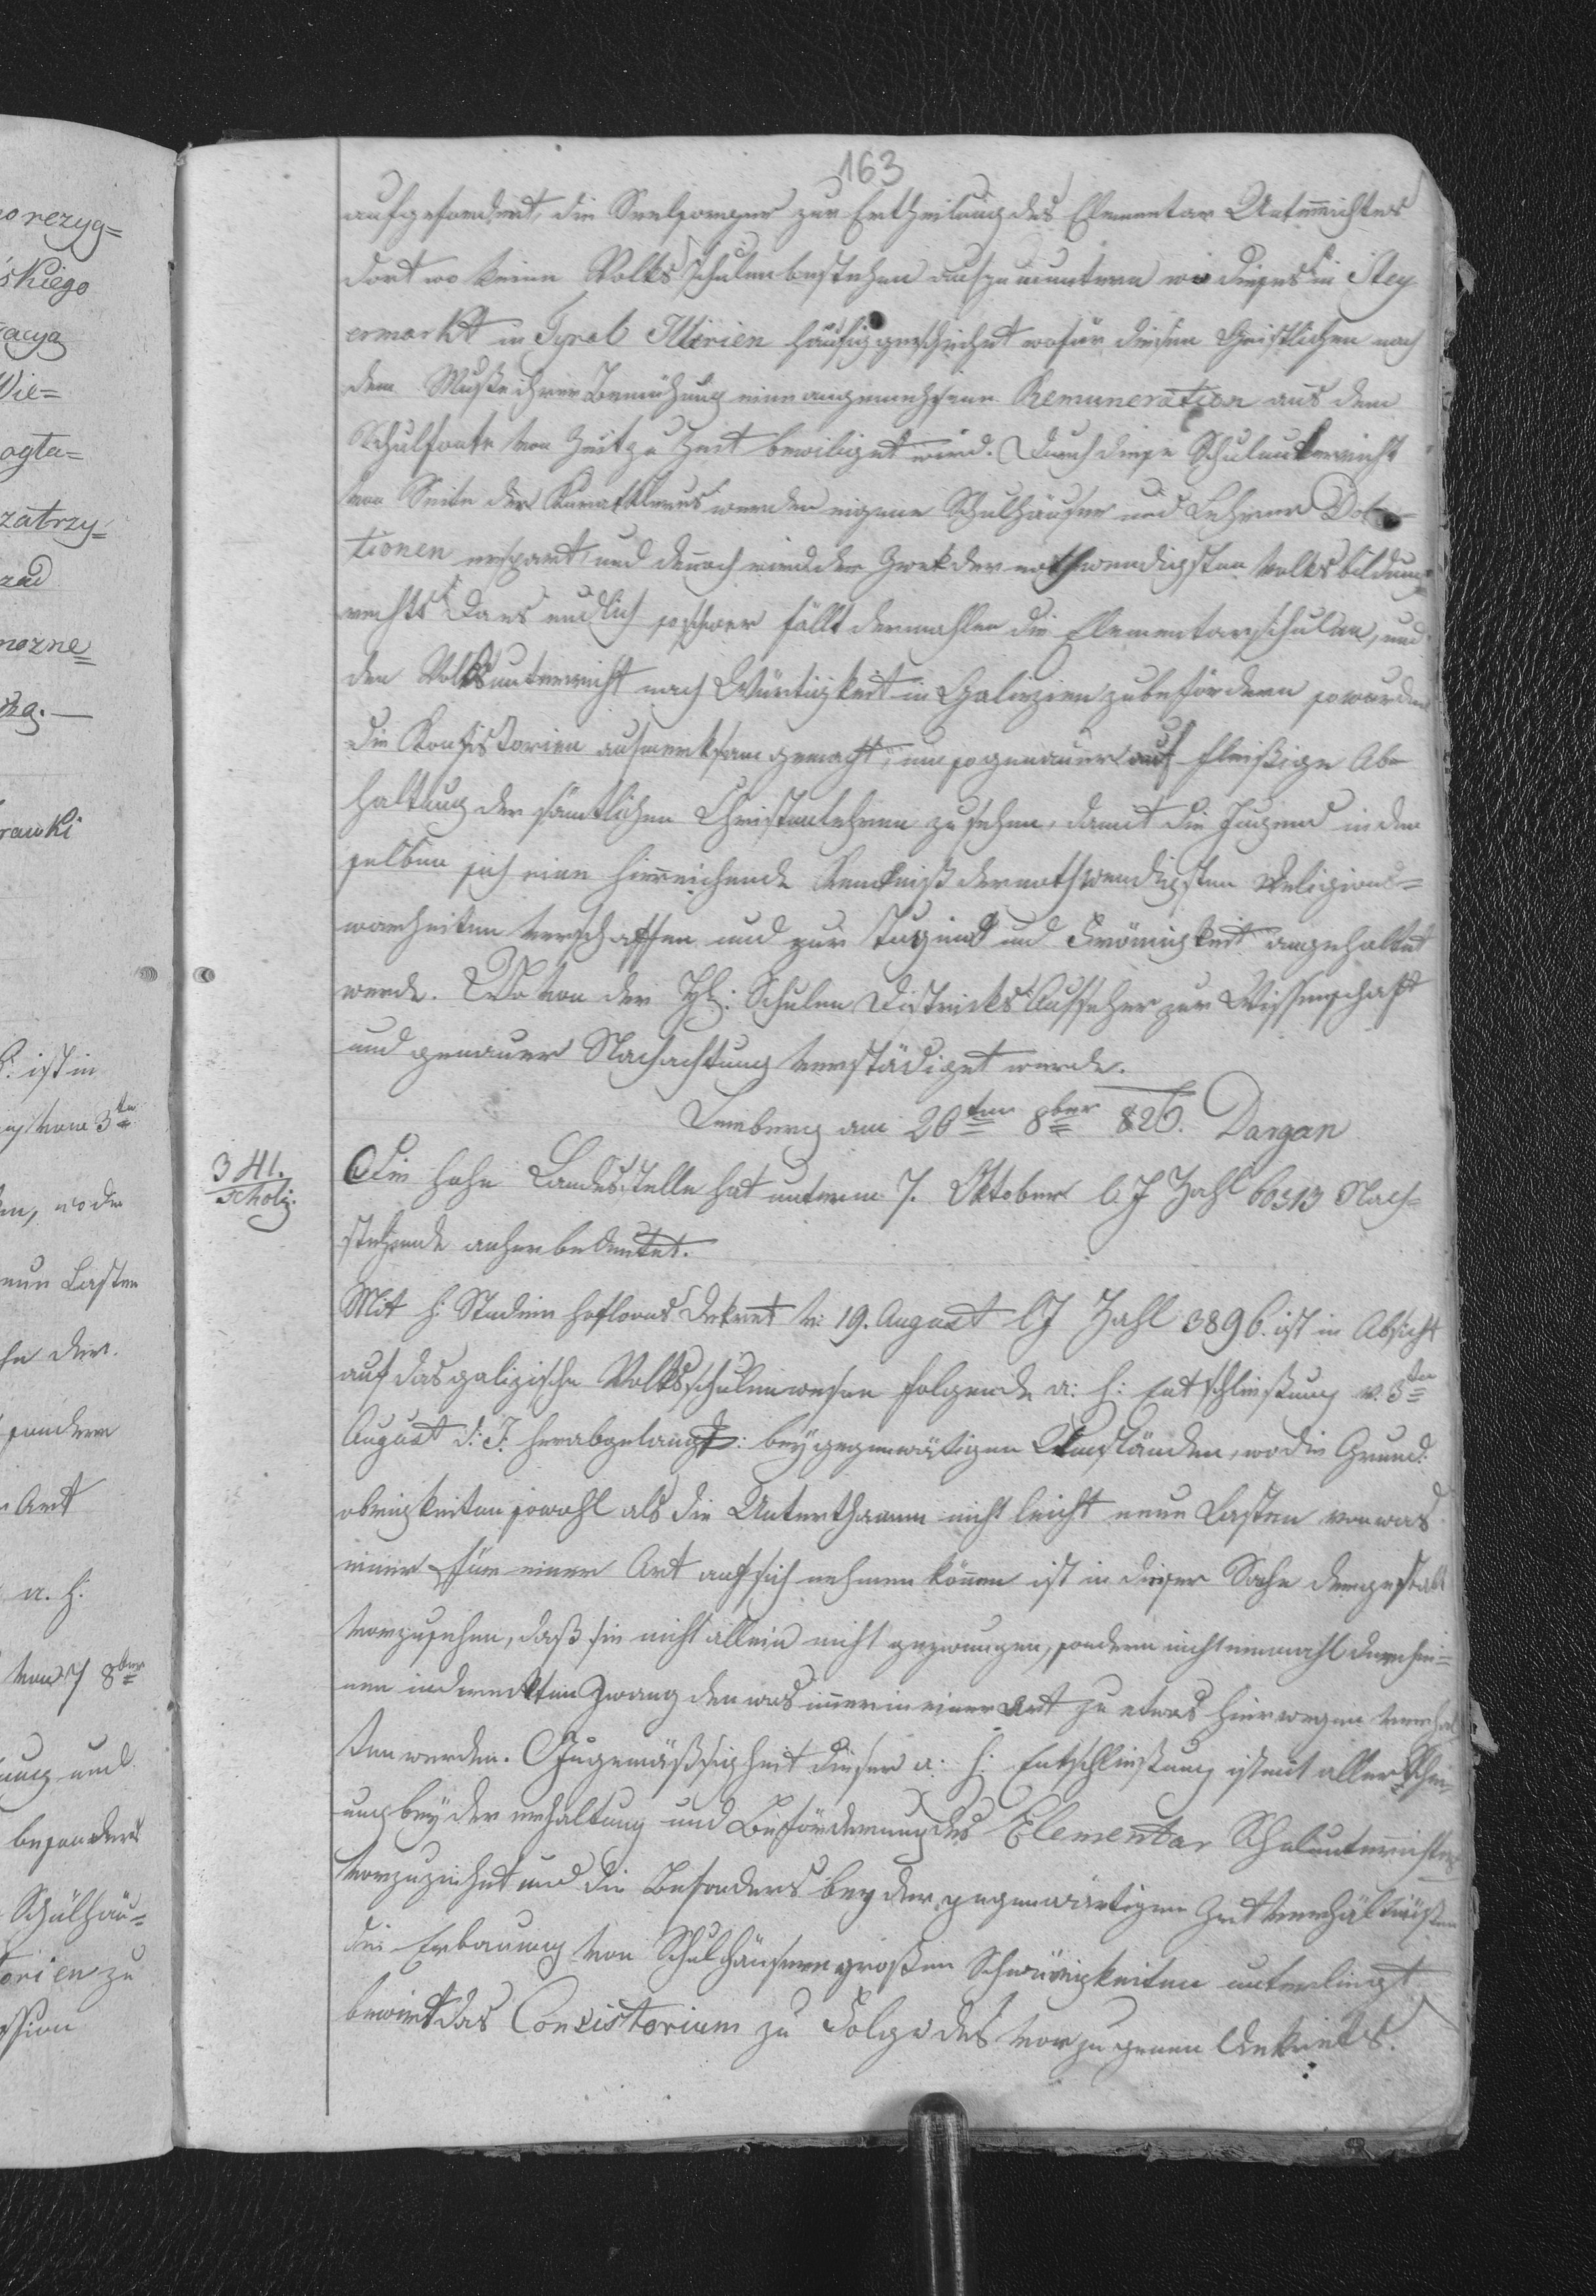 163
aufgefordert, die Seelsorger zur Ertheilung des Elementar Unterrichtes
dort wo keine Volks Schulen bestehen aufzumuntern wie dieses in Stey
ermarkt in Tyrol Illirien häufig geschiehet wofür diesen Geistlichen nach
dem Maße ihrer Bemühung eine angemessene Remuneration aus dem
Schulfonte von Zeit zu Zeit bewiliget wird. Durch diese Schulunterricht
von Seite der Kuratklerus werden eigene Schulhäuser und Lehrer Dota-
tionen erspart, und dennoch wird der Zwek der nothwendigsten Volksbildung
Da es endlich schwer fällt dermahlen die Elementarschulen, und
den Volksunterricht nach Würtigkeit in Galizien zu befördern so werden
die Konsistorien aufmerksam gemacht, um so genauer auf fleißige Ab-
haltung der sämtlichen Christenlehren zu sehen, damit die Jugend in den
selben sich eine hinreichende Kentniß der nothwendigsten Religions=
warheiten verschaffen und zur Tugend und Frömigkeit angehaltet
werde. Wovon der Schulen Districks Aufseher zur Wissenschaft
und genauer Nachachtung verständiget werde.
Lemberg am 26ten 8ber 826. Dargan
341.
Schol:
Die hohe Landesstelle hat unterm 7. Oktober l J Zahl 60313 Nach=
stehende anher bedeutet.
Mit h: Studien Hofkoons Dekret v: 19. August l J Zahl 3896. ist in Absicht
auf das galizische Volksschulenwesen folgende a: h: Entschließung v. 3ten
August d: J. herabgelangt: bey gegenwärtigen Umständen, wo die Grund:
obrigkeiten sowohl als die Unterthanen nicht leicht neue Lasten von was
immer für einer Art auf sich nehmen können ist in dieser Sache dergestalt
vorzusehen, daß sie nicht allein nicht gezwungen, sondern nicht einmahl durch ei=
nen indireckten Zwang den was immer in einer Art zu etwas hierwegen verhal
ten werden. In Gemäßsigheit dieser a: h: Entschließung ist mit aller Schon
ung bey der erhaltung und Beförderung des Elementar Schulunterrichtes
vorzuziehet und die Besonders bey der gegenwärtigen Zeit Verhältnißen
die Erbauung von Schulhäusern großen Schwürigkeiten unterliegt
das Consistorium zu Folge des Dekrets.